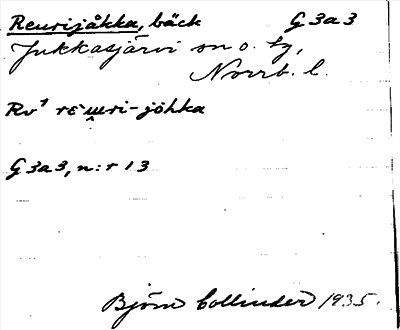 Reurijåkka, bäck G3a3
Jukkasjärvi sn o. tg,
Norrb. l.
G3a3, n:r 13
Björn Collinder 1935.